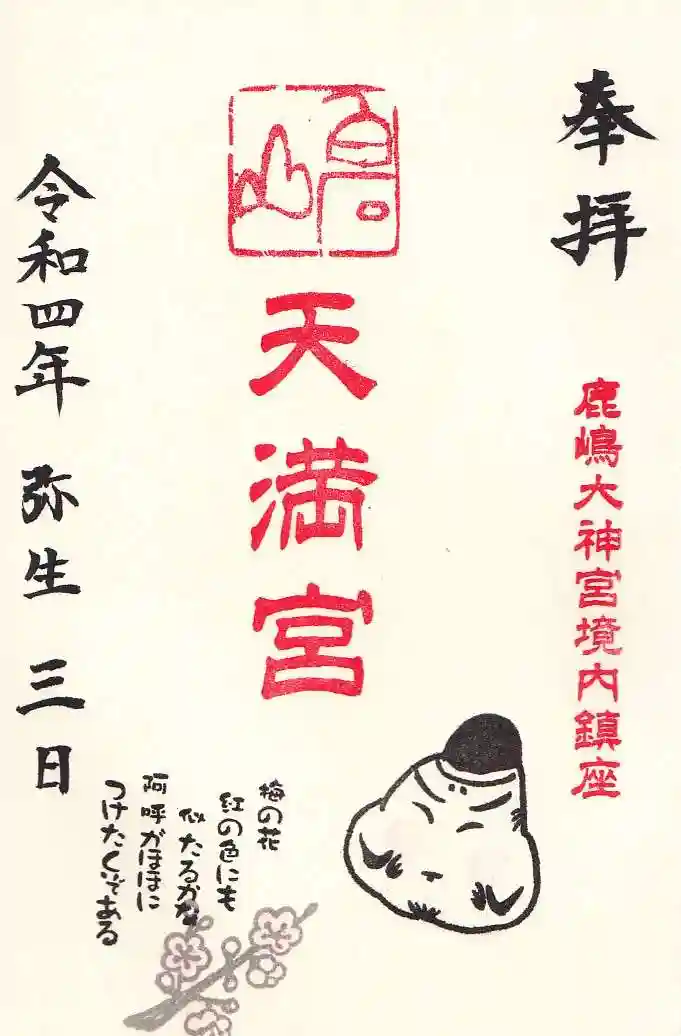 奉拝
鹿嶋大神宮境内鎮座
天満宮
梅の花
紅の色にも
似たるかな
阿呼がほほに
つけたくぞある
令和四年 弥生 三日